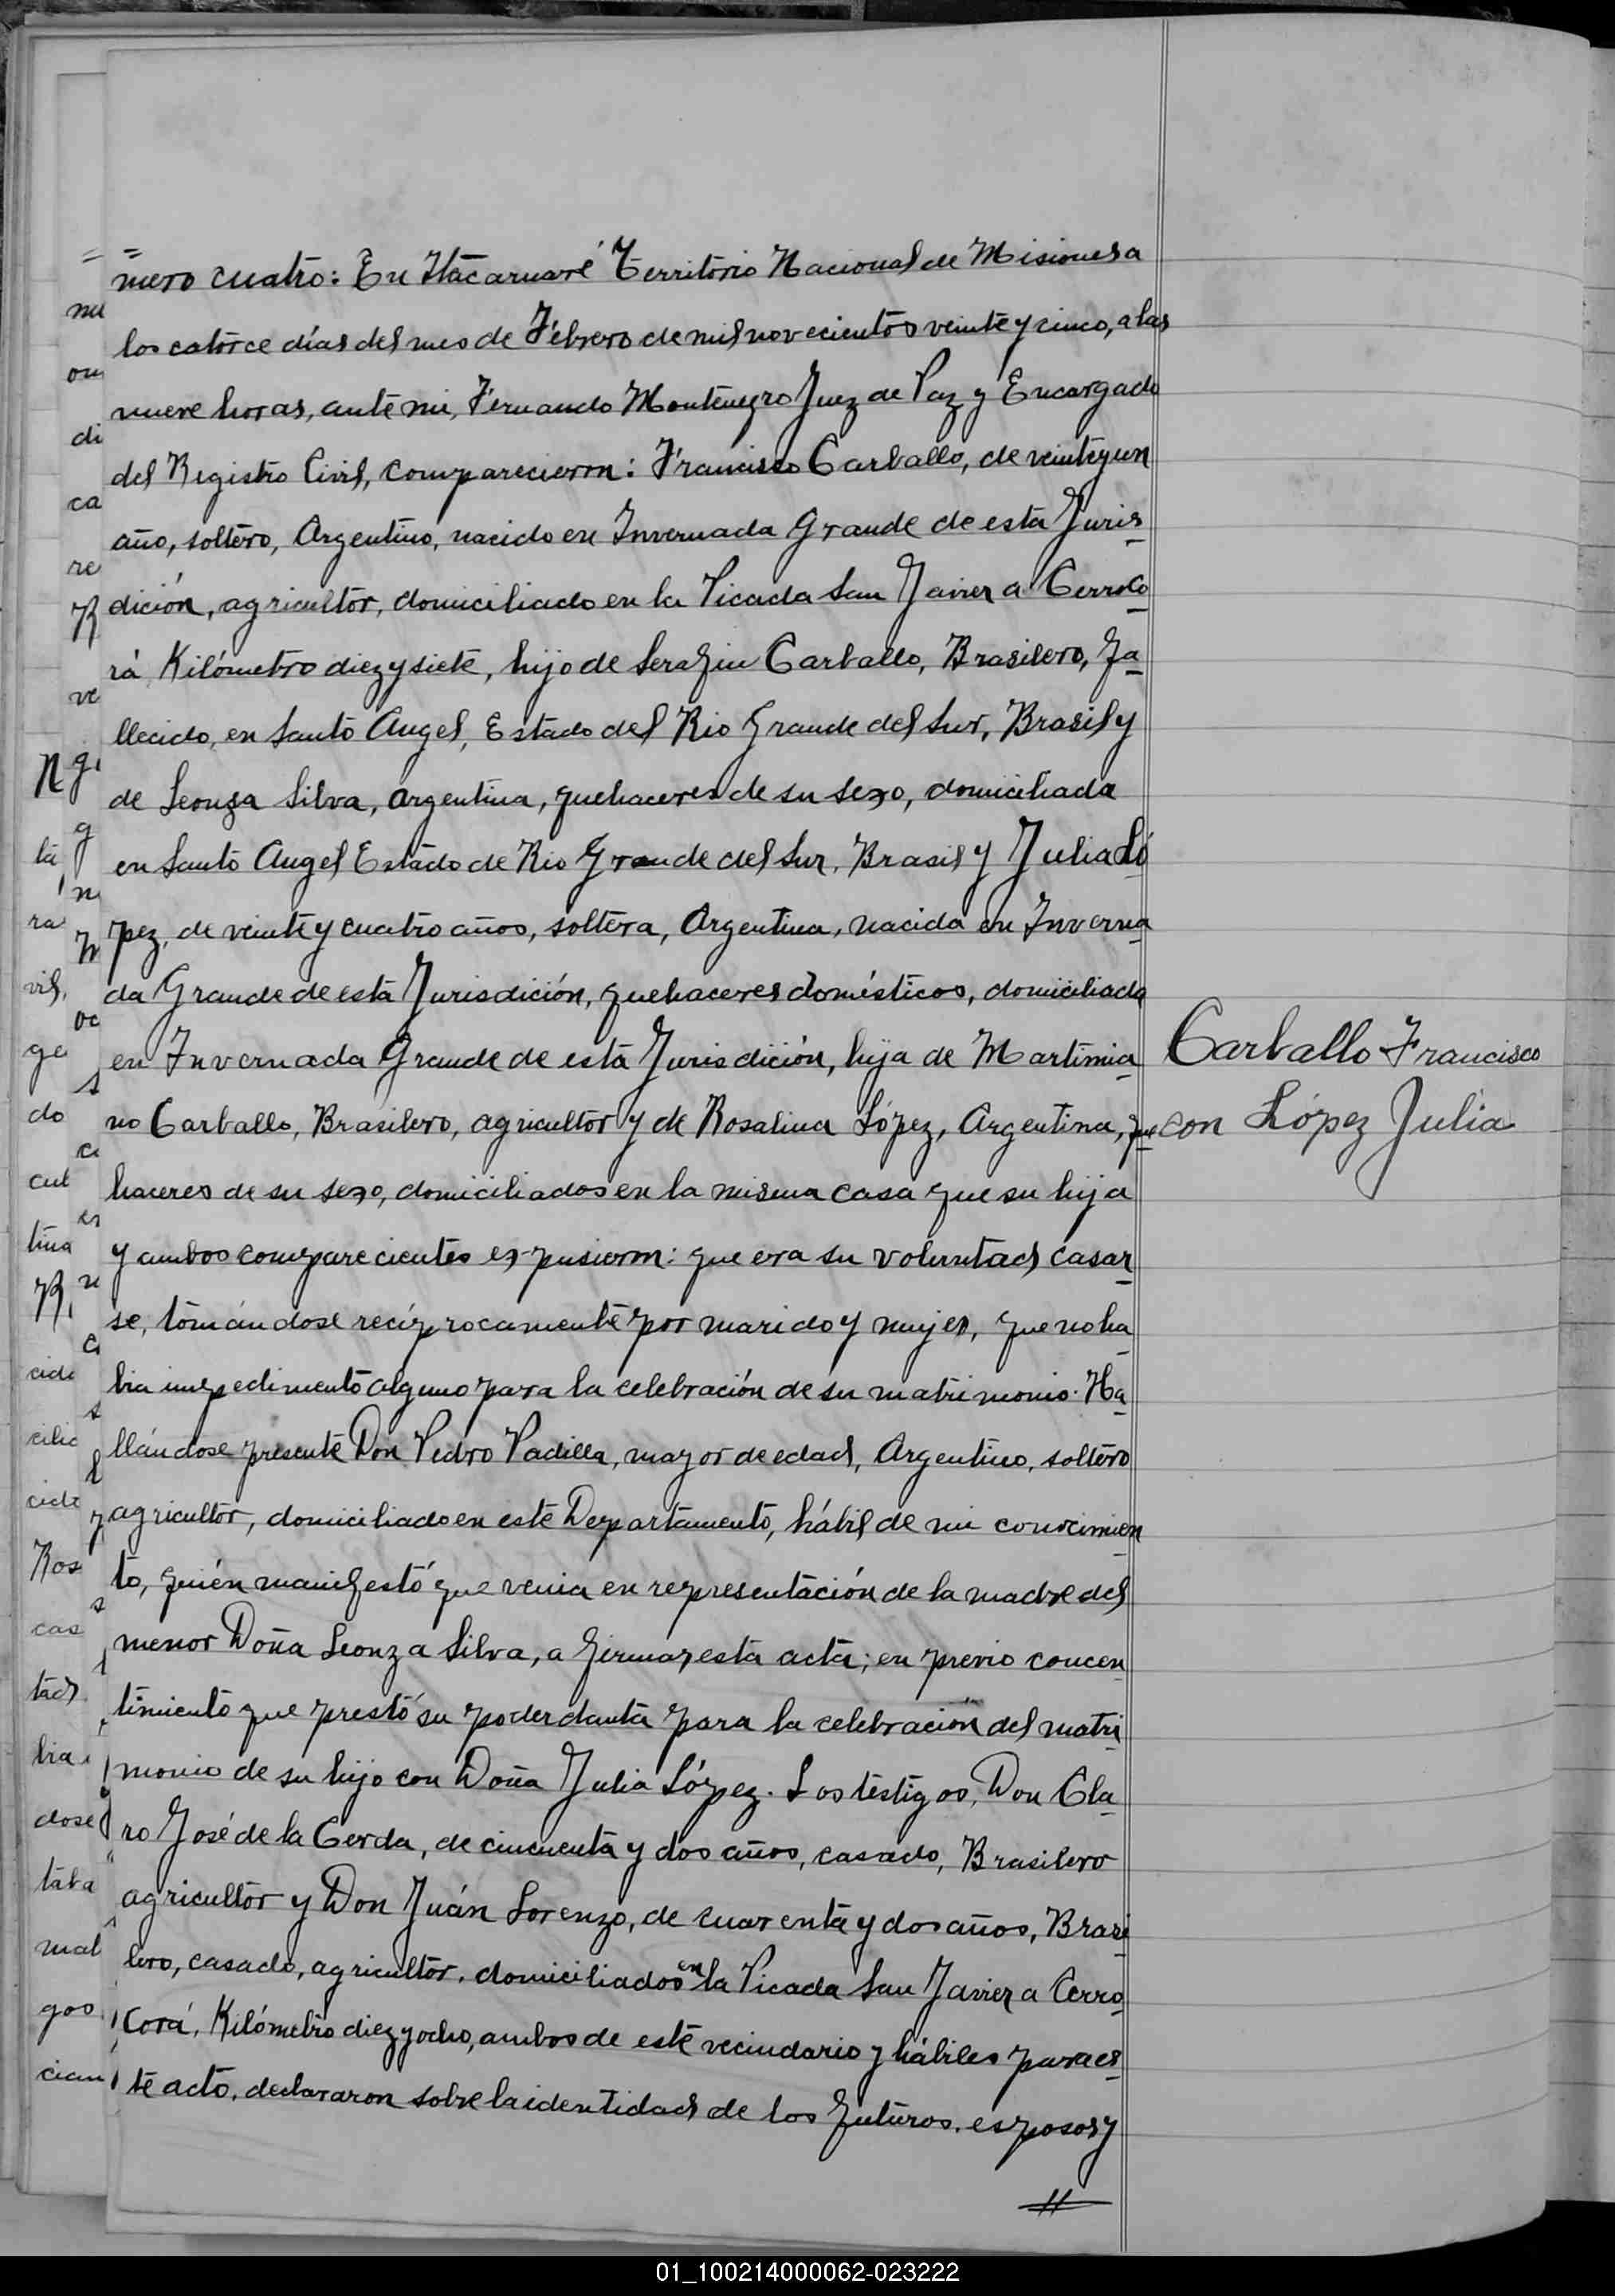 mero cuatro: En Itacaruaré Territorio Nacional de Misiones a
los catorce días del mes de Febrero de mil novecientos veinte y cinco, a las
nueve horas, ante mi, Fernando Montenegro Juez de Paz y Encargado
del Registro Civil, comparecieron: Francisco Carballo, de veinte y un
año, soltero, Argentino, nacido en Invernada Grande de esta Juris
dición, agricultor, domiciliado en la Picada San Javier a Cerro Co
rá, Kilómetro diez y siete, hijo de Serafin Carballo, Brasilero, fa
llecido, en Santo Angel, Estado del Rio Grande del Sur, Brasil y
de Leonza Silva, Argentina, quehaceres de su sexo, domiciliada
en Santo Angel Estado de Rio Grande del Sur, Brasil y Julia Ló
pez, de veinte y cuatro años, soltera, Argentina, nacida en Inverna
da Grande de esta Jurisdición, quehaceres domésticos, domiciliada
en Invernada Grande de esta Jurisdición, hija de Martimia
no Carballo, Brasilero, agricultor y de Rosalina López, Argentina, que
haceres de su sexo, domiciliados en la misma casa que su hija
y ambos comparecientes expusieron: que era su voluntad casar
se, tomándose recíprocamente por marido y mujer, que no ha
bia impedimento alguno para la celebración de su matrimonio. Ha
llándose presente Don Pedro Padilla, mayor de edad, Argentino, soltero
agricultor, domiciliado en este Departamento, hábil de mi conocimien
to, quién manifestó que venia en representación de la madre del
menor Doña Leonza Silva, a firmar esta acta; en previo concen
timiento que prestó su poderdanta para la celebración del matri
monio de su hijo con Doña Julia López. Los testigos, Don Cla
ro José de la Cerda, de cincuenta y dos años, casado, Brasilero
agricultor y Don Juán Lorenzo, de cuarenta y dos años, Brasi
lero, casado, agricultor, domiciliados en la Picada San Javier a Cerro
Corá, Kilómetro diez y ocho, ambos de este vecindario y hábiles para es
te acto, declararon sobre la identidad de los futuros esposos y
Carballo Francisco
con López Julia
01_100214000062-023222